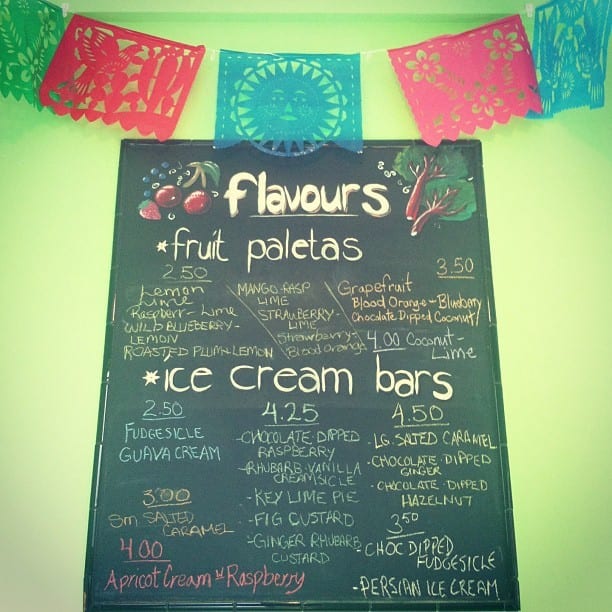 flavours
*fruit paletas
2.50
Lemon
Lime
Raspberr- Lime
WILD BLUEBERRY-
LEMON
ROASTED PLUM-LEMON
MANGO-RASP
LIME
STRAWBERRY-
LIME
Strawberry-
Blood orange
3.50
Grapefruit
Blood Orange - Blueberry
Chocolate Dipped Coconut
4.00 Coconut-
Lime
*ice cream bars
2.50
FUDGESICLE
GUAVA CREAM
3.00
Sm SALTED
CARAMEL
4.00
Apricot Cream w Raspberry
4.25
-CHOCOLATE-DIPPED
RASPBERRY
-RHUBARB-VANILLA
CREAMSICLE
-KEY LIME PIE
-FIG CUSTARD
-GINGER RHUBARB
CUSTARD
4.50
-LG. SALTED CARAMEL
-CHOCOLATE-DIPPED
GINGER
-CHOCOLATE-DIPPED
HAZELNUT
3.50
-CHOC DIPPED
FUDGESICLE
-PERSIAN ICE CREAM